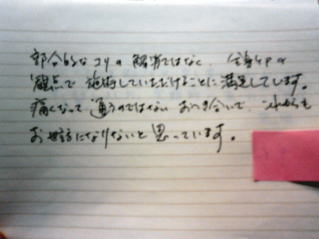 部分的なコリの解消ではなく、全身ケアの
観点で施術していただけることに満足してします。
痛くなって通うのではないおつき合いで、これからも
お世話になりたいと思っています。